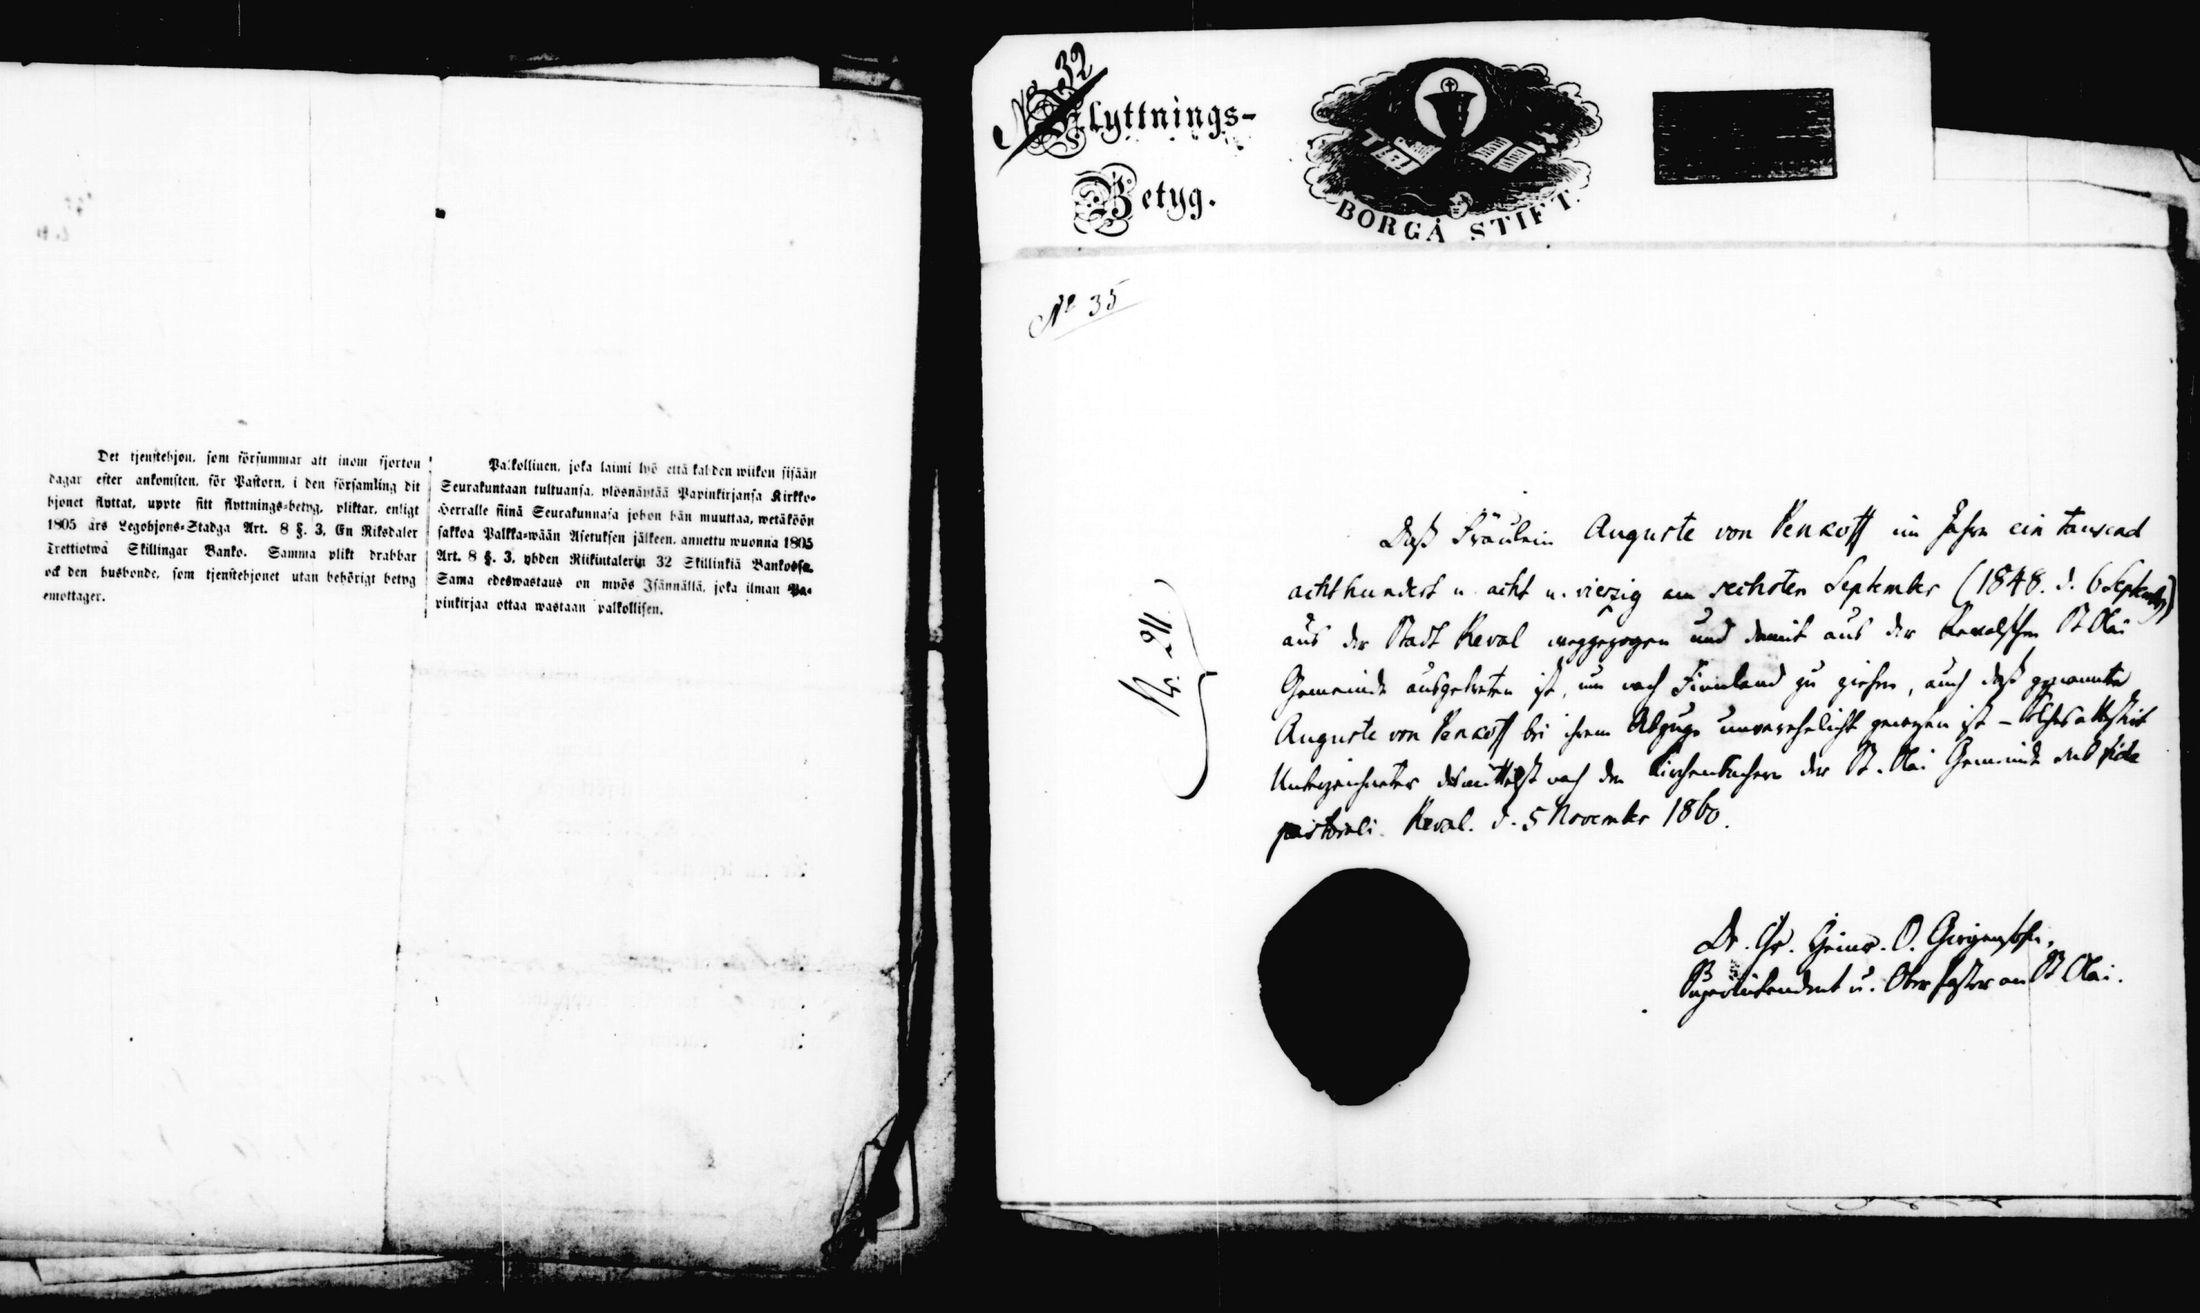 Det tjenstehjon, som försummar att inom fjorton
dagar efter ankomsten, för Pastorn, i den församling dit
hjonet flyttat, uppte sitt flyttnings-betyg, pliktar, enligt
1805 års Legohjons-Stadga Art. 8 §. 3, En Riksdaler
Trettiotwå Skillingar Banko. Samma plikt drabbar
ock den husbonde, som tjenstehjonet utan behörigt betyg
emottager.
Palkollinen, joka laimi lyö että kahden wiikon sisään
Seurakuntaan tultuansa, ylösnäyttää Papinkirjansa Kirkko-
Herralle siinä Seurakunnasa johon hän muuttaa, wetäköön
sakkoa Palkka-wään Asetuksen jälkeen, annettu wuonna 1805
Art. 8 §. 3, yhden Riikintalerin 32 Skillinkiä Bankossa.
Sama edeswastaus on myös Isännällä, joka ilman Pa-
pinkirjaa ottaa wastaan palkollisen.
No 32
Flyttnings-
Betyg.
BORGÅ STIFT.
No 35
Daß Fräulein Auguste von Renkoff im Jahre ein tausend
acht hundert u. acht u. vierzig am sechsten September (1848. d. 6 September)
aus der Stadt Reval weggezogen und damit aus der Revalschen St Olai
Gemeinde ausgetreten ist, um nach Finnland zu ziehen, auch daß genannte
Auguste von Renkoff bei ihrem Abzuge unverehelicht gewesen ist – Solches attestirt
Unterzeichneter desmittelst nach den Kirchenbüchern der St. Olai Gemeinde sub fide
pastorali. Reval. d. 5 November 1860.
Dr. Chr. Heinr. O. Girgensohn,
Superintendent u. Oberpastor an St Olai.